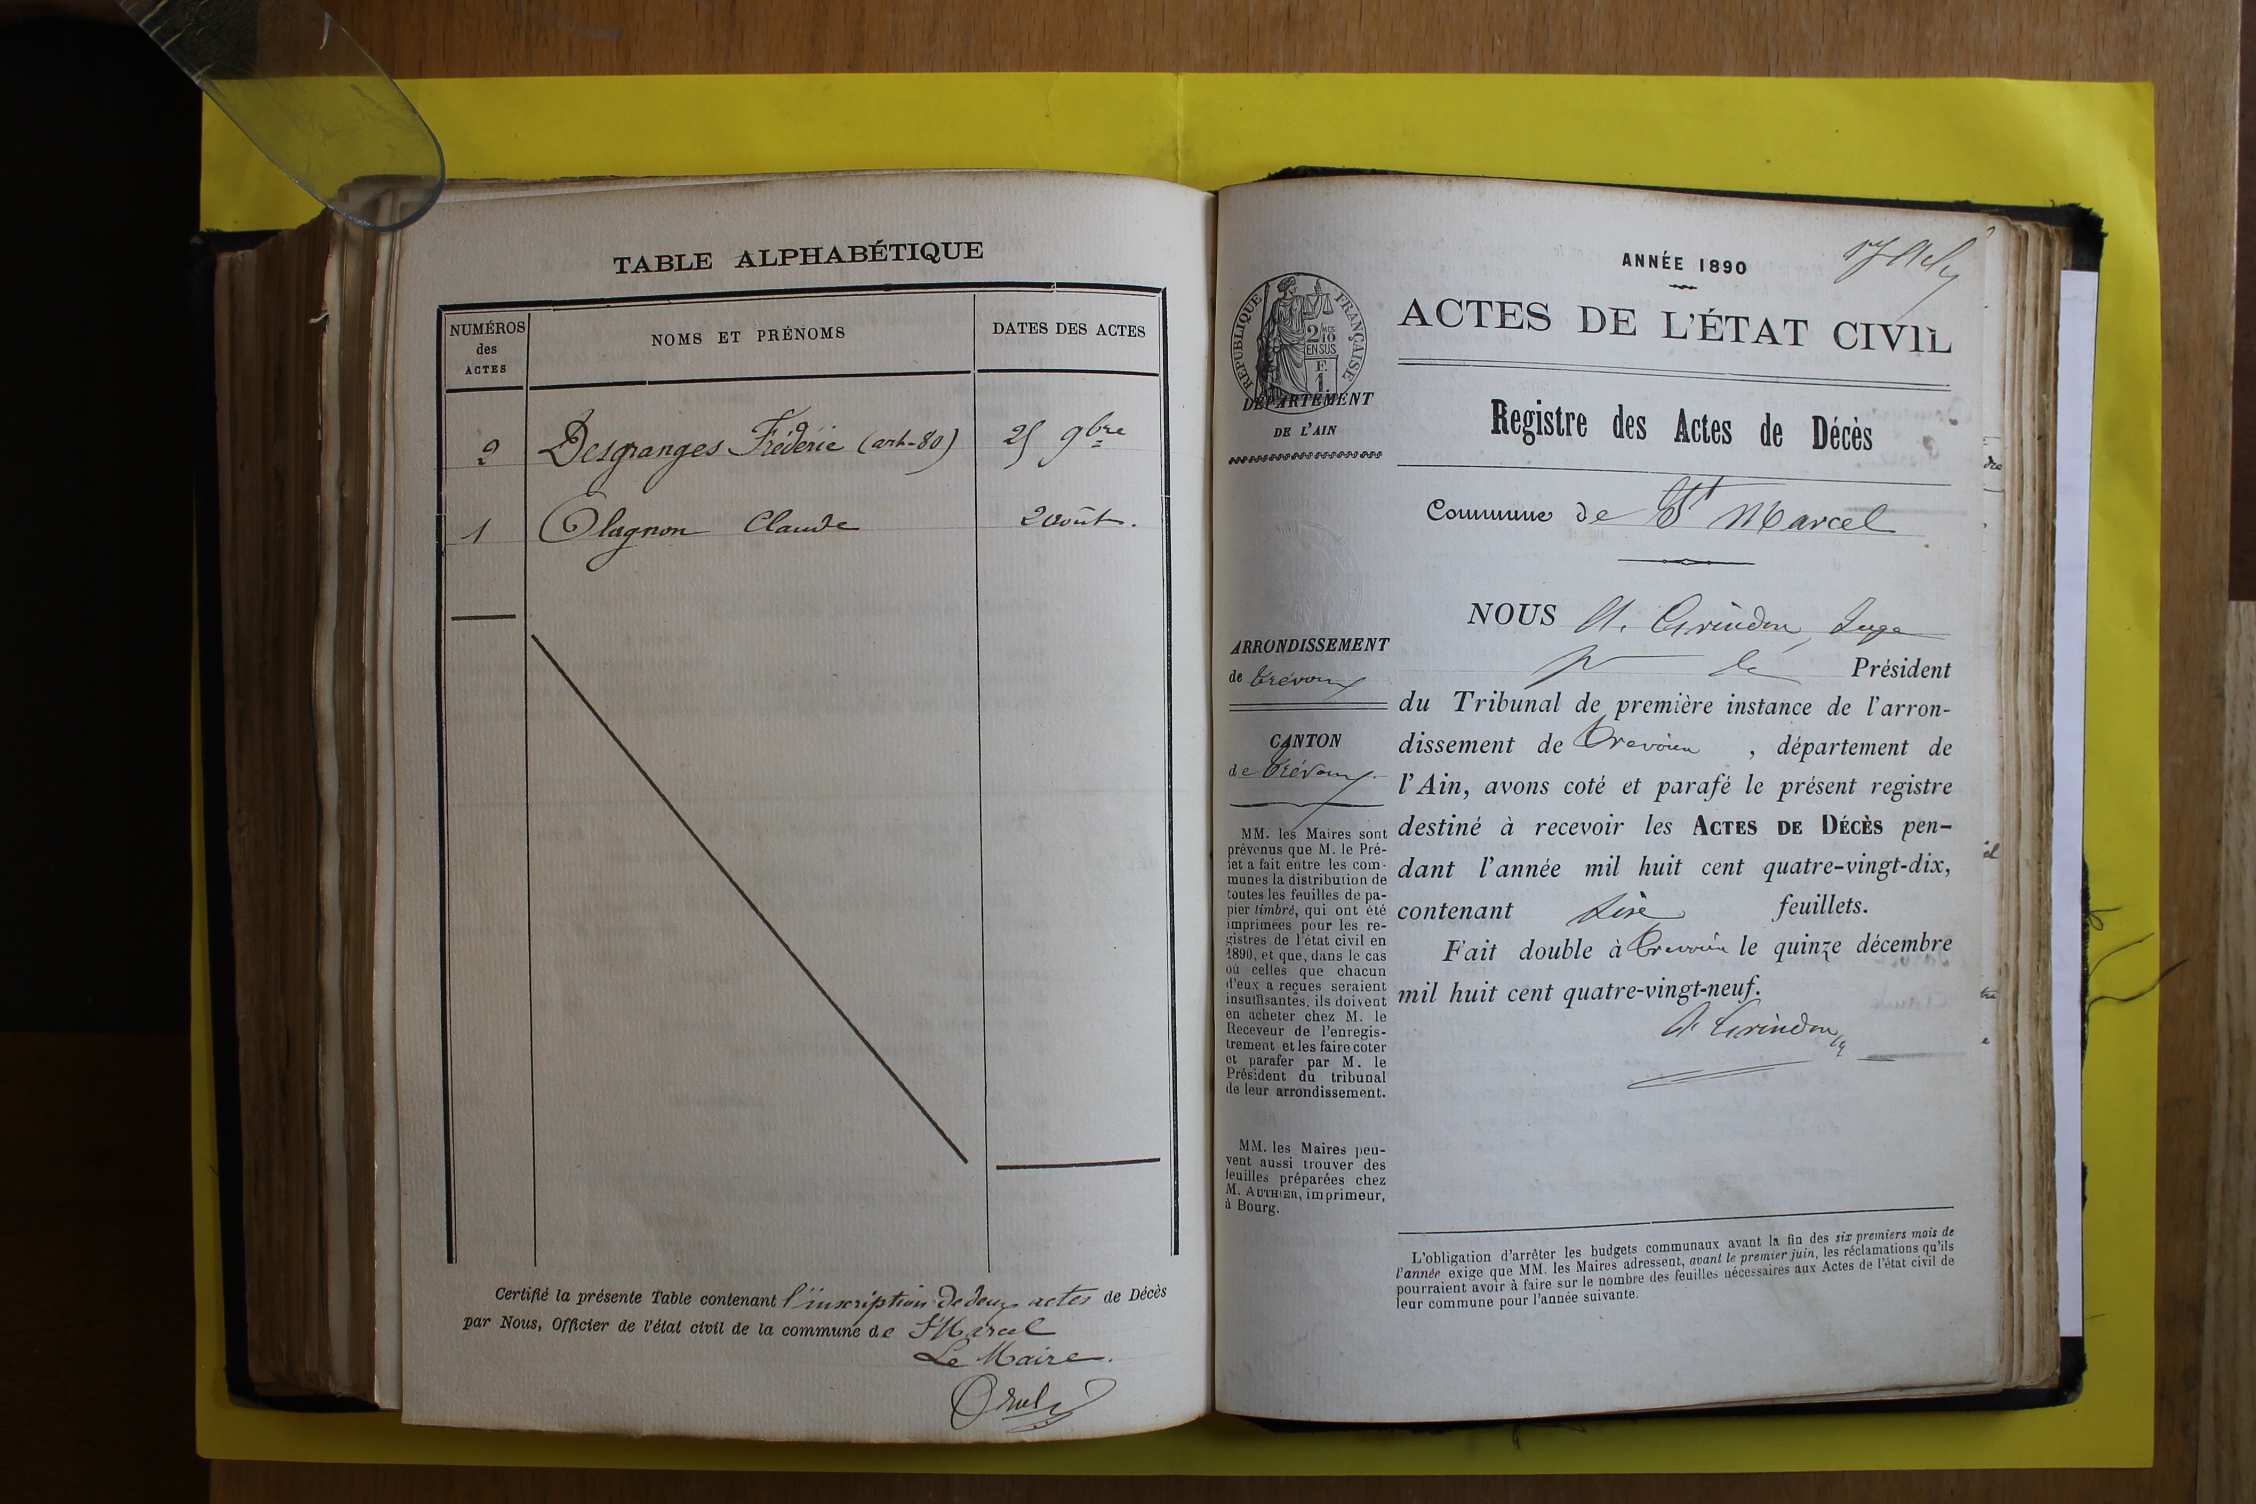 TABLE ALPHABÉTIQUE
NUMÉROS
des
ACTES
NOMS ET PRÉNOMS
DATES DES ACTES
2 Desgranges Fréderic (art-80) 25 9bre
1 Olagnon Claude 2 août.
Certifié la présente Table contenant l'inscription de deux actes de Décès
par Nous, Officier de l'état civil de la commune de St Marcel
Le Maire.
ANNÉE 1890
RÉPUBLIQUE FRANÇAISE
2/10
EN SUS
F
1
DÉPARTEMENT
DE L'AIN
ARRONDISSEMENT
de Trévoux
CANTON
de Trévoux
MM. les Maires sont
prévenus que M. le Pré-
fet a fait entre les com-
munes la distribution de
toutes les feuilles de pa-
pier timbré, qui ont été
imprimées pour les re-
gistres de l'état civil en
1890, et que, dans le cas
où celles que chacun
d'eux a reçues seraient
insuffisantes, ils doivent
en acheter chez M. le
Receveur de l'enregis-
trement et les faire coter
et parafer par M. le
Président du tribunal
de leur arrondissement.
MM. les Maires peu-
vent aussi trouver des
feuilles préparées chez
M. AUTHIER, imprimeur,
à Bourg.
ACTES DE L'ÉTAT CIVIL
Registre des Actes de Décès
Commune de St Marcel
NOUS A. Grindon, Juge
pr le Président
du Tribunal de première instance de l'arron-
dissement de Trevoux , département de
l'Ain, avons coté et parafé le présent registre
destiné à recevoir les ACTES DE DÉCÈS pen-
dant l'année mil huit cent quatre-vingt-dix,
contenant feuillets.
Fait double à Trevoux le quinze décembre
mil huit cent quatre-vingt-neuf.
A. Grindon
L'obligation d'arrêter les budgets communaux avant la fin des six premiers mois de
l'année exige que MM. les Maires adressent, avant le premier juin, les réclamations qu'ils
pourraient avoir à faire sur le nombre des feuilles nécessaires aux Actes de l'état civil de
leur commune pour l'année suivante.